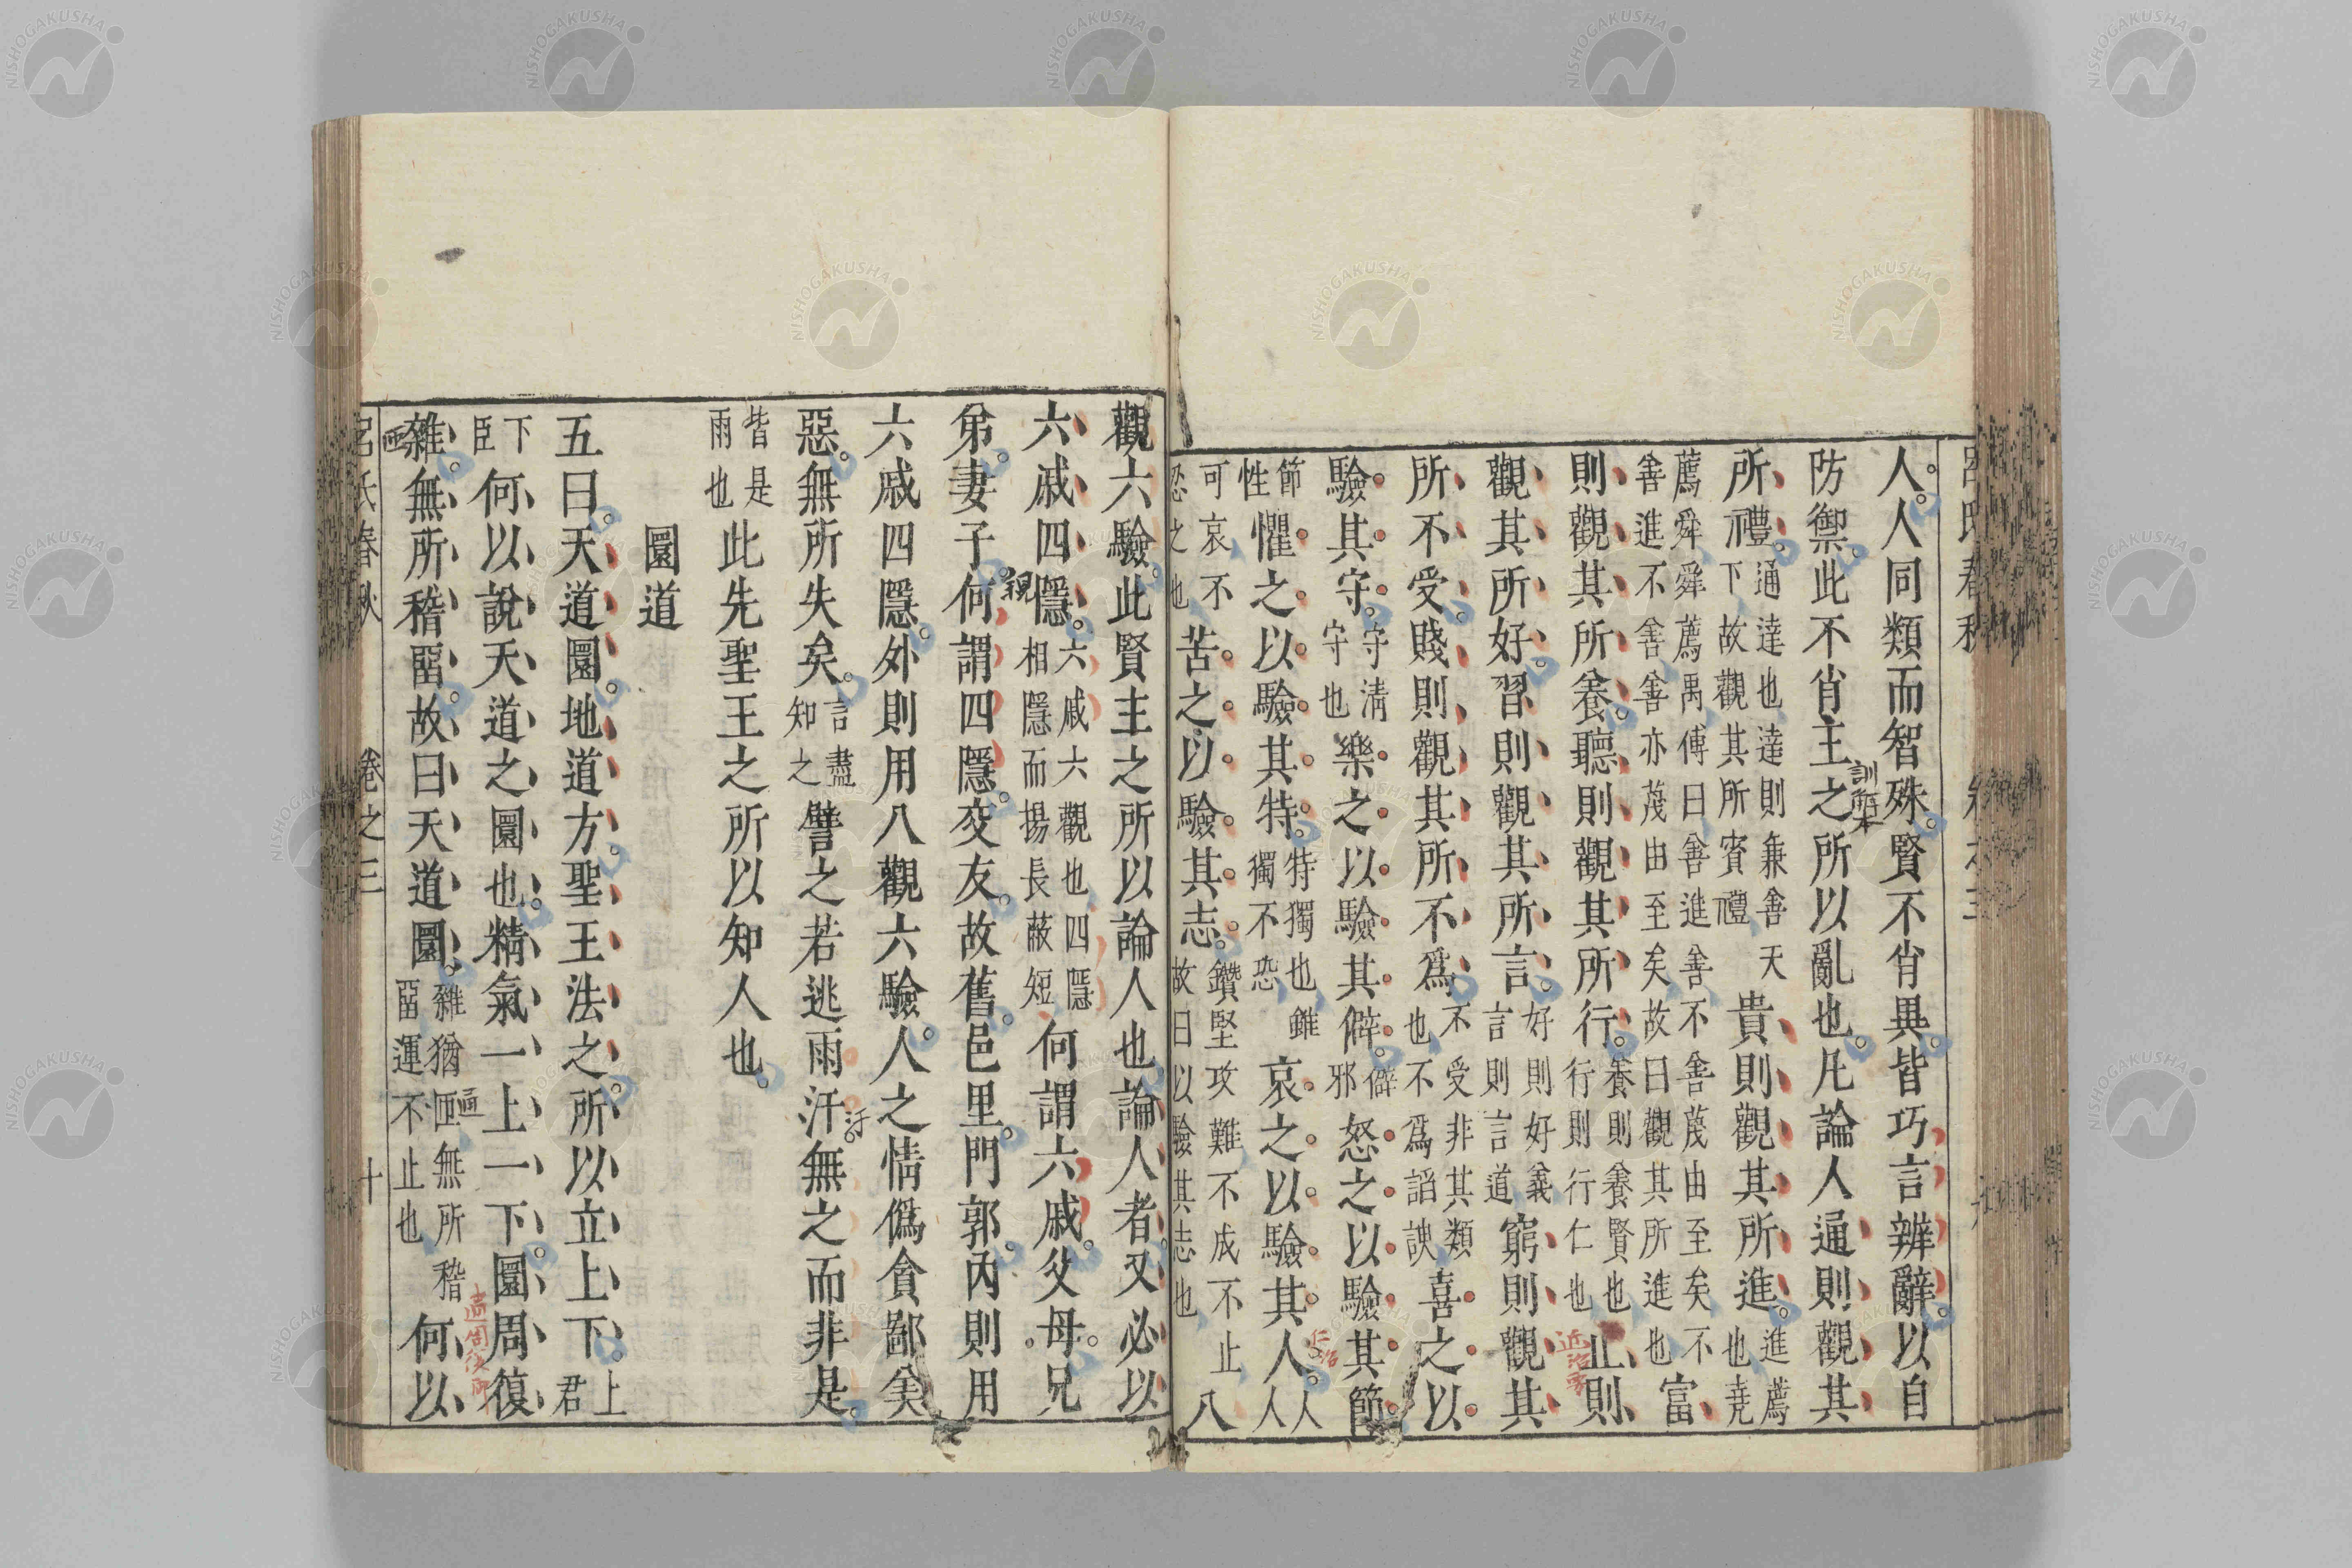 人人同類而智殊賢不肖異皆巧言辨辭以自
防禦此不肖主之所以亂也凡論人通則觀其
所禮通達也達則兼善天下故觀其所賓禮貴則觀其所進進薦也堯
薦舜舜薦禹傳曰善進善不善蔑由至矣不善進不善善亦蔑由至矣故曰觀其所進也富
則觀其所養聽則觀其所行養則養賢也行則行仁也止則
觀其所好習則觀其所言好則好義言則言道窮則觀其
所不受賤則觀其所不爲不受非其類也不爲諂諛喜之以
驗其守守清守也樂之以驗其僻僻邪怒之以驗其節
節性懼之以驗其特特獨也雖獨不恐哀之以驗其人人人
可哀不恐之也苦之以驗其志鑽堅攻難不成不止故曰以驗其志也八
觀六驗此賢主之所以論人也論人者又必以
六戚四隱六戚六觀也四隱相隱而揚長蔽短何謂六戚父母兄
弟妻子何謂四隱交友故舊邑里門郭內則用
六戚四隱外則用八觀六驗人之情僞貪鄙美
惡無所失矣言盡知之譬之若逃雨汙無之而非是
皆是雨也此先聖王之所以知人也
圜道
五曰天道圜地道方聖王法之所以立上下上君
下臣何以說天道之圜也精氣一上一下圜周復
雜無所稽畱故曰天道圜雜猶匝無所稽畱運不止也何以
呂氏春秋 卷之三 十
呂氏春秋
訓纂本
親
汙
匝